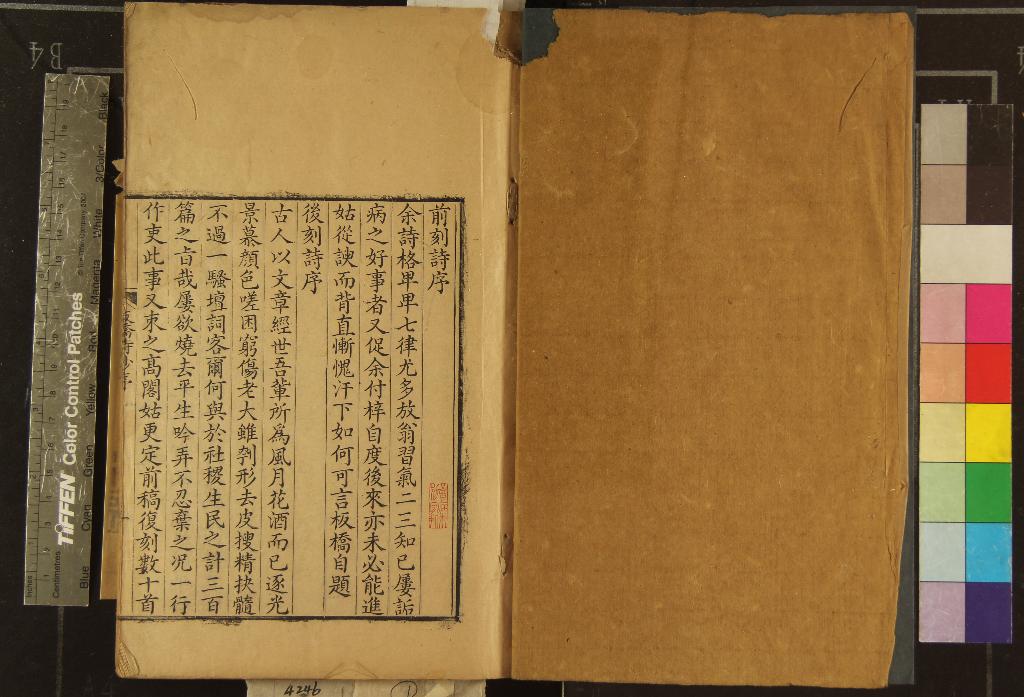 前刻詩序
余詩格卑卑七律尤多放翁習氣二三知已屢詬
病之好事者又促余付梓自度後來亦未必能進
姑從諛而背直慚愧汗下如何可言板橋自題
後刻詩序
古人以文章經世吾輩所爲風月花酒而已逐光
景慕顔色嗟困窮傷老大雖刳形去皮搜精抉髓
不過一騷壇詞客爾何與於社稷生民之計三百
篇之旨哉屢欲燒去平生吟弄不忍棄之况一行
作吏此事又束之高閣姑更定前稿復刻數十首
4246
1
B4
TIFFEN Color Control Patches
Inches
Centimetres
Blue
Cyan
Green
Yellow
Red
Magenta
White
3/Color
Black